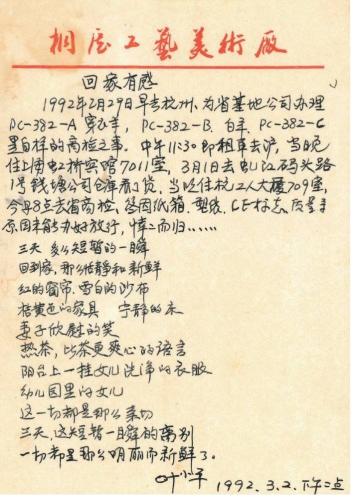 桐庐工艺美术厂
回家有感
1992年2月29日早去杭州,为省基地公司办理
PC-382-A 穿衣羊,PC-382-B 白羊,PC-382-C
黑白样的商检之事。中午11:30即租车去沪,当晚
住上海虹桥宾馆7011室,3月1日去虬江码头路
1号钱塘公司仓库看货,当晚住杭工人大厦709室,
今早8点去省商检,答因纸箱、塑袋、CE标志、质量等
原因未能办好放行,悻々而归……
三天 多么短暂的一瞬
回到家,那么恬静和新鲜
红的窗帘、雪白的沙布
桔黄色的家具 宁静的床
妻子欣慰的笑
热茶,比茶更爽心的语言
阳台上一挂女儿洗净的衣服
幼儿园里的女儿
这一切都是那么亲切
三天,这短暂一瞬的离别
一切都是那么明丽而新鲜了。
叶小平 1992.3.2.下午二点